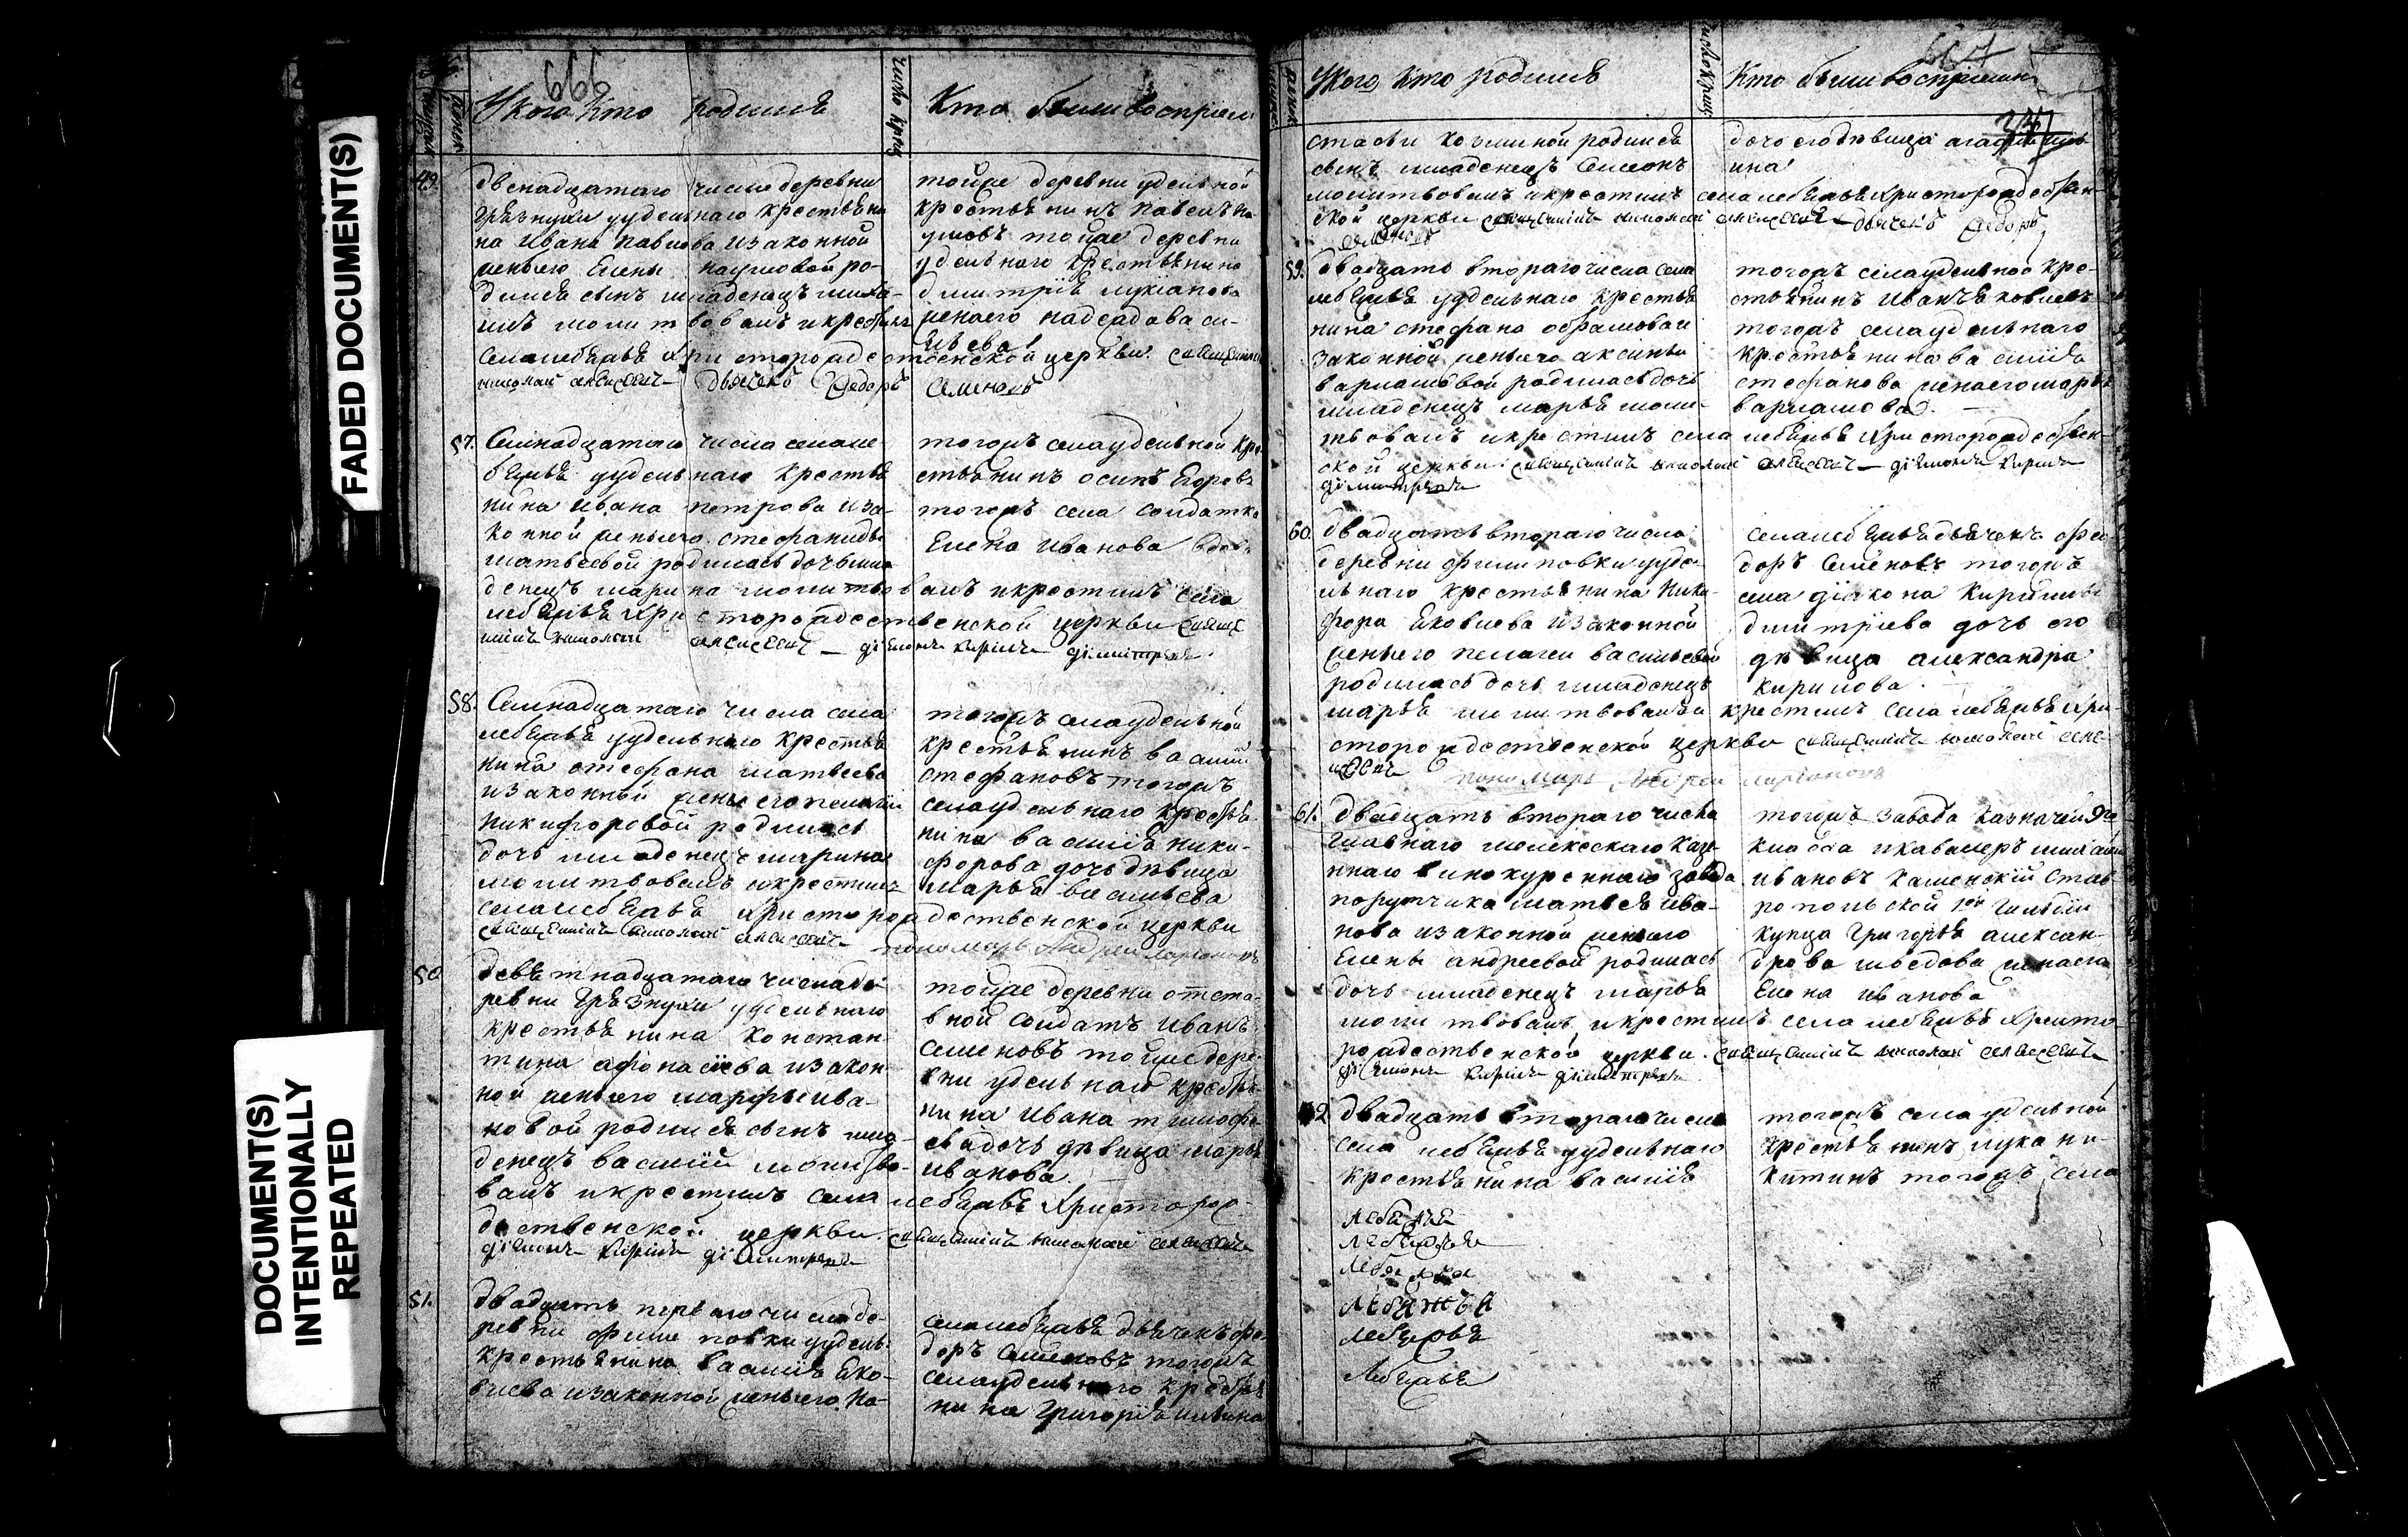 FADED DOCUMENT(S)
DOCUMENT(S)
INTENTIONALLY
REPEATED
666
У кого кто родился
Кто были восприем
49.
двенадцатого числа деревни
грязнухи удельнаго крестьяни
на Ивана павлова и законной
жены его Елены наумовой ро-
дился сынъ младенецъ миха-
илъ молитвовалъ и крестилъ
села лебяжья христорождественской церкви священникъ
николай алексеевъ дьячекъ Федоръ Семеновъ
тойже деревни удельной
крестьянинъ павелъ на
умовъ тойже деревни
удельнаго крестьянина
димитрія лукіанова
жена его
57.
Семнадцатаго числа села ле-
бяжья удельнаго крестья
нина Ивана петрова и за-
конной жены его стефаниды
матвеевой родилась дочь мла-
денецъ марина молитвовалъ и крестилъ села
лебяжья христорождественской церкви священ
никъ николай алексеевъ діяконъ Кирилъ димитріевъ
тогожъ села удельной кре
стьянинъ осипъ Егоровъ
тогожъ села солдатка
Елена Иванова вдова
58.
Семнадцатаго числа села
лебяжья удельнаго крестья
нина стефана матвеева
и законной жены его пелагіи
никифоровой родилась
дочь младенецъ марина
молитвовалъ и крестилъ
села лебяжья христорождественской церкви
священникъ николай алексеевъ пономарь Андрей Ларіоновъ
тогожъ села удельной
крестьянинъ василій
стефановъ тогожъ
села удельнаго крестья
нина василія ники-
форова дочь девица
марья васильева
50
девятнадцатаго числа де
ревни грязнухи удельнаго
крестьянина констан
тина афонасіева и закон
ной жены его марфы ива-
новой родился сынъ мла-
денецъ василій молитво-
валъ и крестилъ села лебяжья христорож-
дественской церкви священникъ николай алексеевъ
діяконъ Кирилъ димитріевъ
тойже деревни отста-
вной солдатъ Иванъ
Семеновъ тойже дере-
вни удельнаго крестья
нина Ивана тимофе-
ева дочь девица марья
иванова
51.
двадцать перваго числа де-
ревни филиповки удель.
крестьянина василія Яко-
влева и законной жены его На-
села лебяжья дьячекъ фе
доръ Семеновъ тогожъ
села удельнаго крестья
нина григорія ильина
У кого кто родился
Кто были восприемн
стасьи козминой родился
сынъ младенецъ Симеонъ
молитвовалъ и крестилъ села лебяжья христорождествен-
ской церкви священникъ николай алексеевъ дьячекъ Федоръ
Семеновъ
дочь его девица
ина
59.
двадцать втораго числа села
лебяжья удельнаго крестья
нина стефана абрамова и
законной жены его аксиньи
варламовой родилась дочь
младенецъ марья моли-
твовалъ и крестилъ села лебяжья христорождествен-
ской церкви священникъ николай алексеевъ діяконъ Кирилъ
димитріевъ
тогожъ села удельной кре-
стьянинъ иванъ яковлевъ
тогожъ села удельнаго
крестьянина василія
стефанова жена его марья
варламова.
60.
двадцать втораго числа
деревни филиповки удѣ-
льнаго крестьянина Ники-
фора Яковлева и законной
жены его пелагеи васильевой
родилась дочь младенецъ
марья молитвовалъ и крестилъ села лебяжья хри-
сторождественской церкви священникъ николай алек-
сеевъ пономарь Андрей Ларіоновъ
села лебяжья дьячекъ фео
доръ Семеновъ тогожъ
села діякона Кирилы
димитріева дочь его
дѣвица александра
кирилова.
61.
двадцать втораго числа
главнаго мелекескаго казе
ннаго винокуреннаго завода
порутчика матвея ива-
нова и законной жены его
Елены андреевой родилась
дочь младенецъ марья
молитвовалъ и крестилъ села лебяжья христо
рождественской церкви. священникъ николай алексеевъ
діяконъ Кирилъ димитріевъ
тогожъ завода казначей
и кавалеръ михаилъ
ивановъ каменскій став
ропольской гильдіи
купца григорья алексан-
дрова жена его
Елена иванова
62
двадцать втораго числа
села лебяжья удельнаго
крестьянина василія
тогожъ села удельной
крестьянинъ лука ни-
китинъ тогожъ села
лебяжья
лебяжья
лебяжья
лебяжья
лебяжья
лебяжья